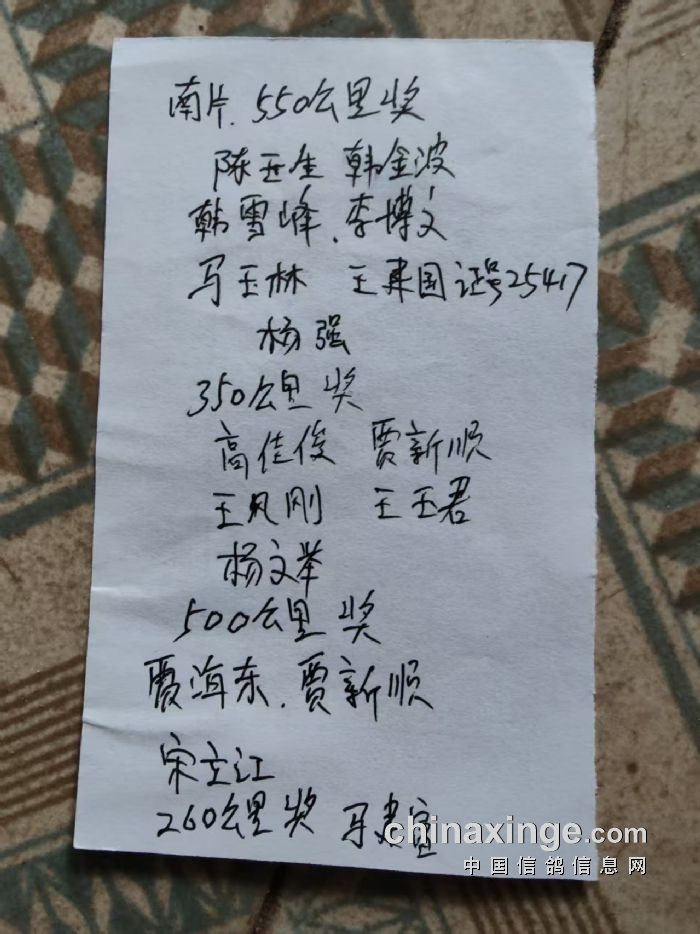 南片、550公里奖
陈玉生 韩金波
韩雪峰、李博文
马玉林 王建国证号25417
杨强
350公里奖
高佳俊 贾新顺
王凡刚 王玉君
杨文举
500公里奖
贾海东、贾新顺
宋立江
260公里奖 马建宣
chinaxinge.com
中国信鸽信息网